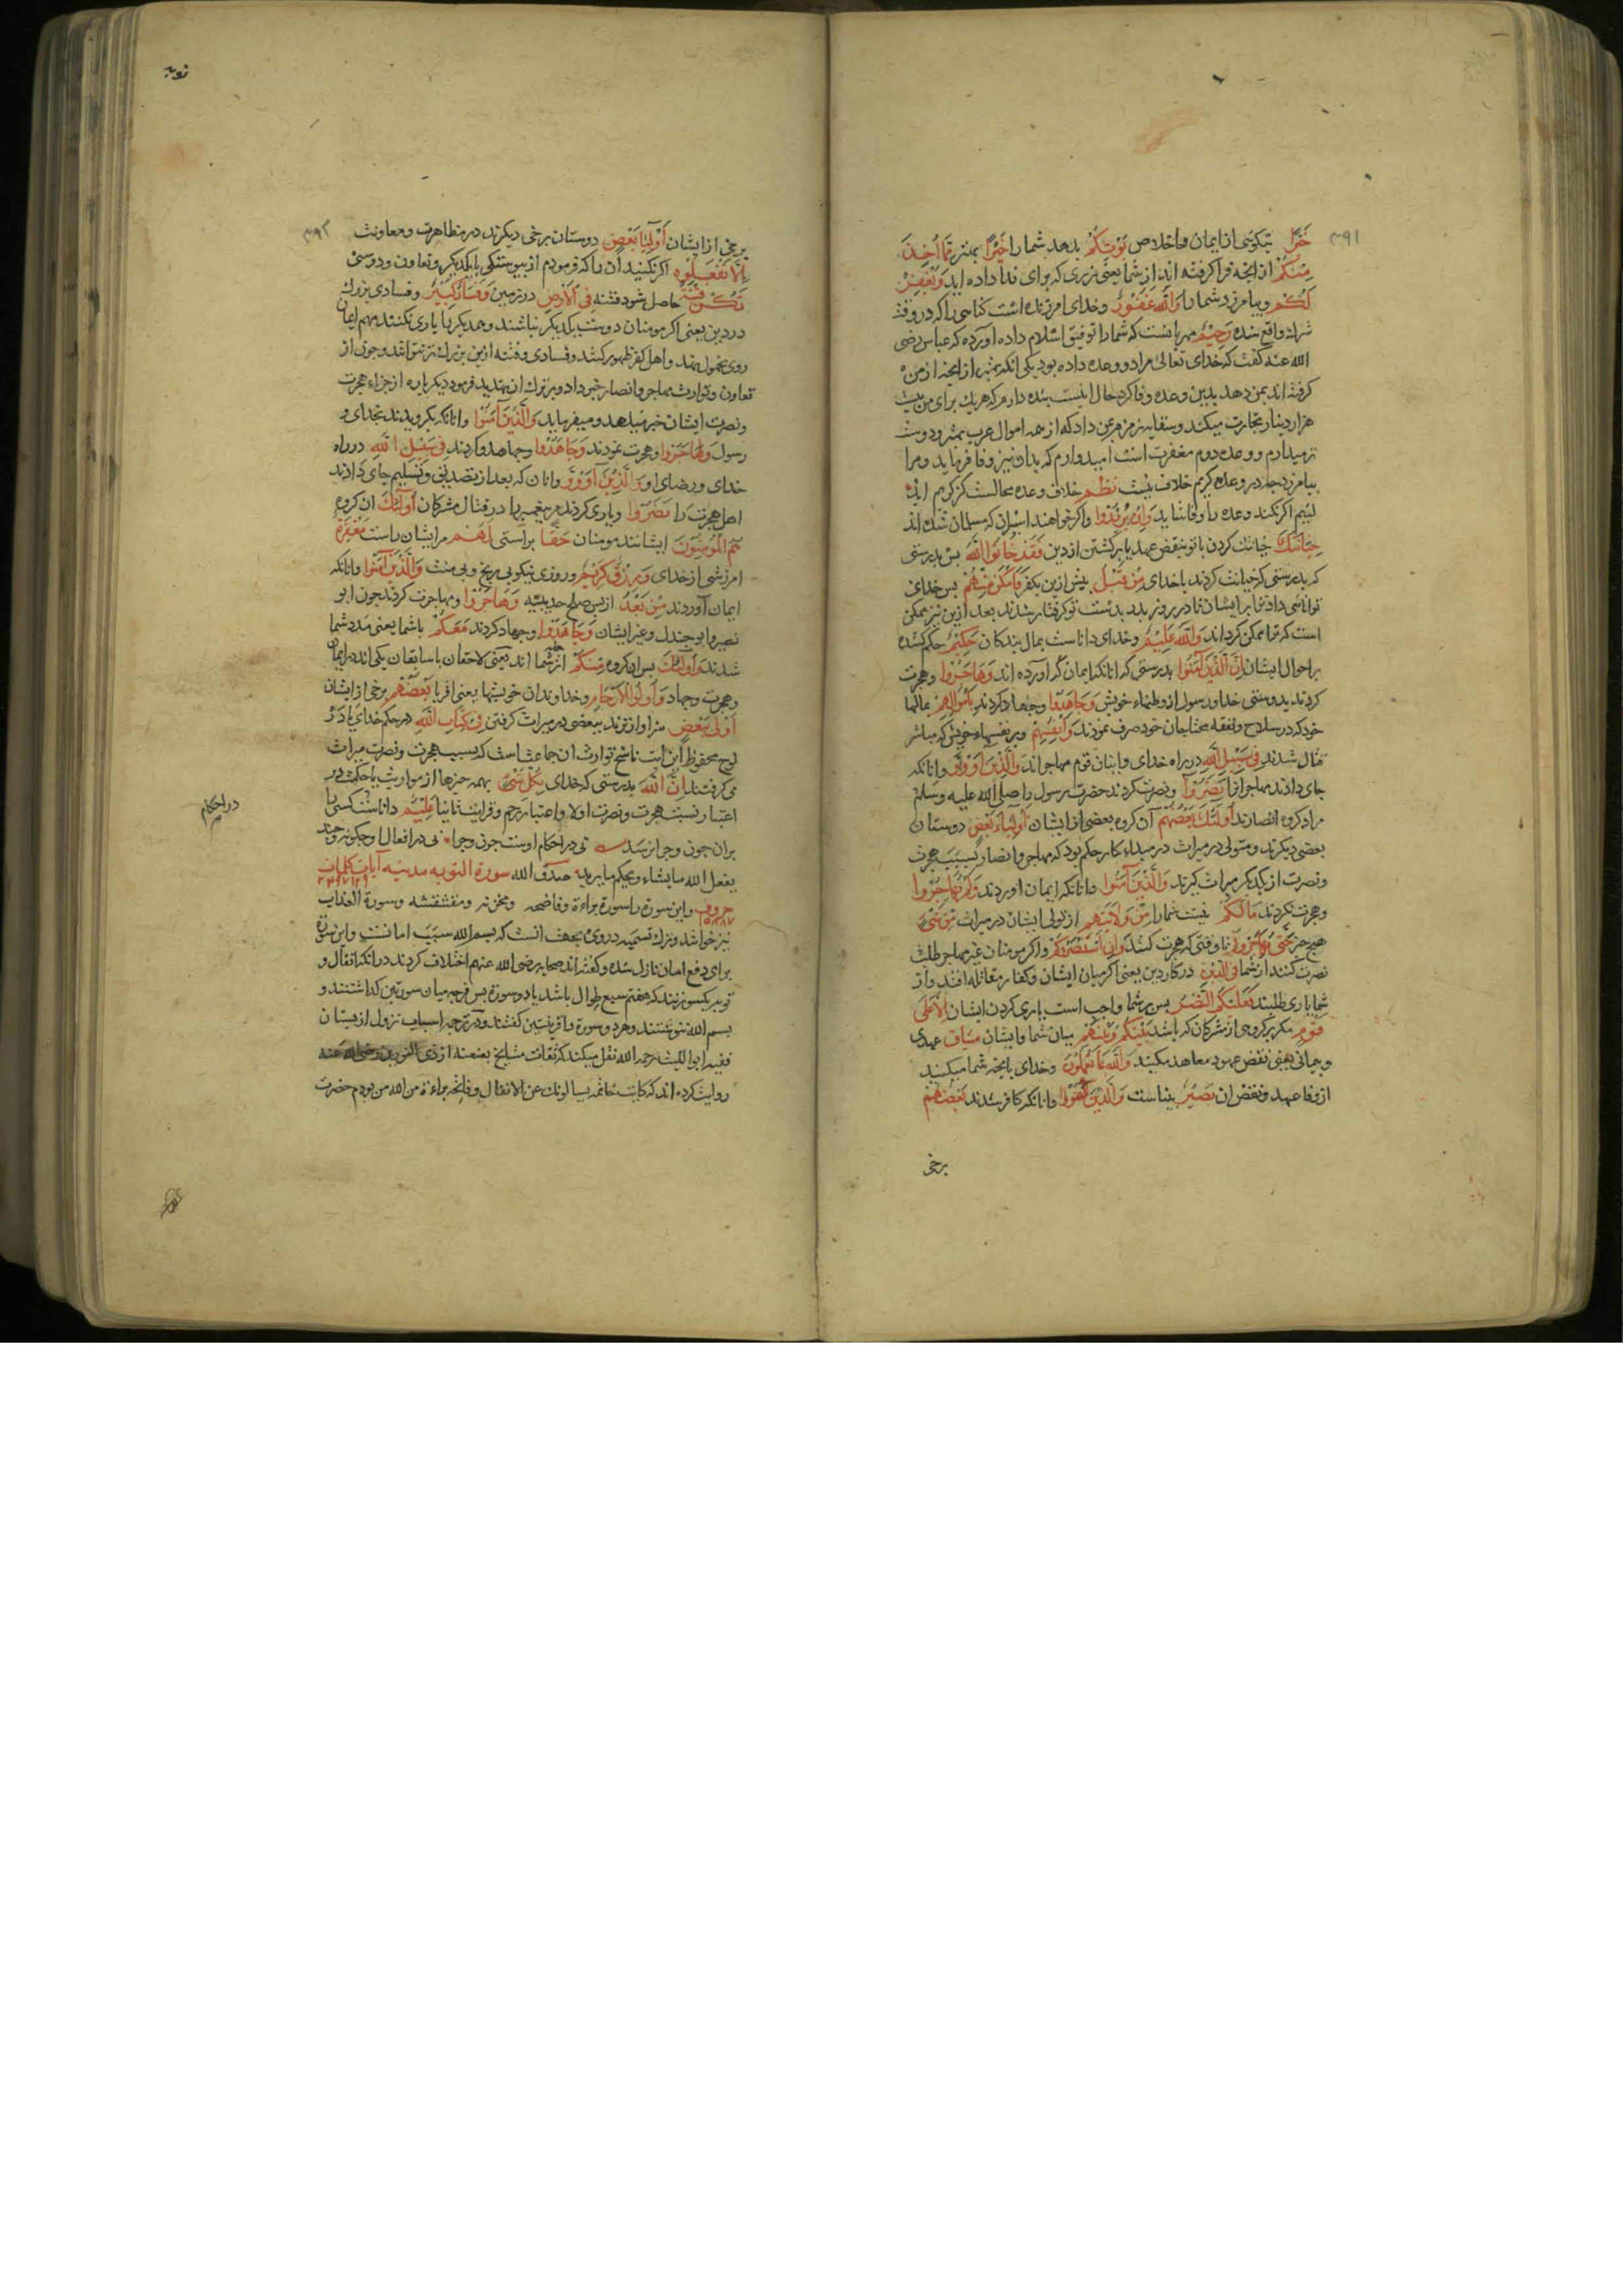 ۳۹۱
خَیْرًا نیکویی از ایمان و اخلاص یُؤْتِکُمْ بدهد شما را خَیْرًا بهتر مِمَّا اُخِذَ
مِنْکُمْ از انچه فرا کرفته اند از شما یعنی زری که برای فدا داده اید وَیَغْفِرْ
لَکُمْ و بیامرزد شما را وَاللّٰهُ غَفُورٌ و خدای امرزنده است کناهی را که در وقت
شرک واقع شده رَحِیمٌ مهربانست که شما را توفیق اسلام داده آورده که عباس رضی
الله عنه کفت که خدای تعالی مرا دو وعده داده بود یکی انکه بهتر از انچه از من
کرفته اند بمن دهد بدین وعده وفا کرد حال بیست بنده دارم که هر یک برای من بیست
هزار دینار تجارت میکند و سقایه زمزم بمن داد که از همه اموال عرب بهتر و دوست
تر میدارم و وعده دوم مغفرت است امیدوارم که بدان نیز وفا فرماید و مرا
بیامرزد جه در وعده کریم خلاف نیست نظم خلاف وعده محالست کز کریم اید
لئیم اکر نکند وعده را وفا شاید وَاِنْ یُرِیدُوا و اکر خواهند اسیران که مسلمان شده اند
خِیَانَتَکَ خیانت کردن با تو بنقض عهد یا برکشتن از دین فَقَدْ خَانُوا اللّٰهَ بس بدرستی
که بدرستی که خیانت کردند با خدای مِنْ قَبْلُ بیش ازین بکفر فَاَمْکَنَ مِنْهُمْ بس خدای
توانایی داد ترا بر ایشان تا در روز بدر بدست تو کرفتار شدند بعد ازین نیز ممکن
است که ترا ممکن کرداند وَاللّٰهُ عَلِیمٌ و خدای داناست بمال بندکان حَکِیمٌ حکم کننده
بر احوال ایشان اِنَّ الَّذِینَ آمَنُوا بدرستی که انانکه ایمان آورده اند وَهَاجَرُوا و هجرت
کردند بدوستی خدا و رسول از وطنهاء خویش وَجَاهَدُوا و جهاد کردند بِاَمْوَالِهِمْ بمالهاء
خود که در سلاح و نفقه محتاجان خود صرف نمودند وَاَنْفُسِهِمْ و بر نفسهاء خویش که مباشر
قتال شدند فِی سَبِیلِ اللّٰهِ در راه خدای و اینان قوم مهاجراند وَالَّذِینَ آوَوْا و انانکه
جای دادند مهاجرانرا وَنَصَرُوا و نصرت کردند حضرت رسول را صلی الله علیه وسلم
مراد کروه انصارند اُولٰئِکَ بَعْضُهُمْ آن کروه بعضی از ایشان اَوْلِیَاءُ بَعْضٍ دوستان
بعضی دیکرند و متولی در میراث در مبداء کار حکم بود که مهاجر و انصار بسبب هجرت
و نصرت از یکدیکر میراث کیرند وَالَّذِینَ آمَنُوا و انانکه ایمان اوردند وَلَمْ یُهَاجِرُوا
و هجرت نکردند مَالَکُمْ نیست شما را مِنْ وَلَایَتِهِمْ از تولی ایشان در میراث مِنْ شَیْءٍ
هیچ جیز حَتّٰی یُهَاجِرُوا تا وقتی که هجرت کنند وَاِنِ اسْتَنْصَرُوکُمْ و اکر مومنان غیر مهاجر طلب
نصرت کنند از شما فِی الدِّینِ در کار دین یعنی اکر میان ایشان و کفار مقاتله افتد و از
شما یاری طلبند فَعَلَیْکُمُ النَّصْرُ بس بر شما واجب است یاری کردن ایشان اِلَّا عَلٰی
قَوْمٍ مکر بر کروهی از مشرکان که باشد بَیْنَکُمْ وَبَیْنَهُمْ میان شما و ایشان مِیثَاقٌ عهدی
و بیمانی یعنی نقض عهد معاهد مکنید وَاللّٰهُ بِمَا تَعْمَلُونَ و خدای بانچه شما میکنید
از وفا عهد و نقض ان بَصِیرٌ بیناست وَالَّذِینَ کَفَرُوا و انانکه کافر شدند بَعْضُهُمْ
برخی
توبه
۳۹۲
برخی از ایشان اَوْلِیَاءُ بَعْضٍ دوستان برخی دیکرند در مظاهرت و معاونت
اِلَّا تَفْعَلُوهُ اکر نکنید ان را که فرمودم از بیوستکی با یکدیکر و تعاون و دوستی
تَکُنْ فِتْنَةٌ حاصل شود فتنه فِی الْاَرْضِ در زمین وَفَسَادٌ کَبِیرٌ و فسادی بزرک
در دین یعنی اکر مومنان دوست یکدیکر نباشند و همدیکر را یاری نکنند مهم ایمان
روی بخمول نهد و اهل کفر ظهور کنند و فسادی و فتنه ازین بزرک تر نتواند و جون از
تعاون و توارث مهاجر و انصار خبر داد و بر ترک ان تهدید فرمود دیکر باره از جزاء هجرت
و نصرت ایشان خبر میدهد و میفرماید وَالَّذِینَ آمَنُوا و انانکه بکرویدند بخدای و
رسول وَهَاجَرُوا و هجرت نمودند وَجَاهَدُوا و جهاد کردند فِی سَبِیلِ اللّٰهِ در راه
خدای و رضای او وَالَّذِینَ آوَوْا و انان که بعد از تصدیق و تسلیم جای دادند
اهل هجرت را وَنَصَرُوا و یاری کردند بیغمبر را در قتال مشرکان اُولٰئِکَ ان کروه
هُمُ الْمُؤْمِنُونَ ایشانند مومنان حَقًّا براستی لَهُمْ مر ایشان راست مَغْفِرَةٌ
امرزشی از خدای وَرِزْقٌ کَرِیمٌ و روزی نیکو بی رنج و بی منت وَالَّذِینَ آمَنُوا و انانکه
ایمان آوردند مِنْ بَعْدُ از بس صلح حدیبیه وَهَاجَرُوا و مهاجرت کردند جون ابو
نصیر و ابو جندل و غیر ایشان وَجَاهَدُوا و جهاد کردند مَعَکُمْ با شما یعنی مدد شما
شدند فَاُولٰئِکَ بس ان کروه مِنْکُمْ از شما اند یعنی لاحقان با سابقان یکی اند در ایمان
و هجرت و جهاد وَاُولُوا الْاَرْحَامِ و خداوندان خویشیها یعنی اقربا بَعْضُهُمْ برخی از ایشان
اَوْلٰی بِبَعْضٍ سزاوارترند ببعضی در میراث کرفتن فِی کِتَابِ اللّٰهِ در حکم خدای یا در
لوح محفوظ این ایت ناسخ توارث ان جماعت است که بسبب هجرت و نصرت میراث
می کرفتند اِنَّ اللّٰهَ بدرستی که خدای بِکُلِّ شَیْءٍ بهمه جیزها از مواریث یا حکمت در
اعتبار نسبت هجرت و نصرت اولا و اعتبار رحم و قرابت ثانیا عَلِیمٌ داناست کسی را
بران جون و جرا نرسد نی در احکام اوست جون و جرا نی در افعال او جکونه و جند
یفعل الله ما یشاء و یحکم ما یرید صدق الله سورة التوبه مدنیه آیات ۱۲۹ کلمات
حروف و این سورة را سورة براءة و فاضحه و مخزیه و مقشقشه و سورة العذاب
نیز خوانند و ترک تسمیه در وی بجهت انست که بسم الله سبب امانست و این سورة
برای دفع امان نازل شده و کفته اند صحابه رضی الله عنهم اختلاف کردند در انکه انفال و
توبه یکسورتند که هفتم سبع طوال باشد یا دو سورة بس فرجه میان سورتین کذاشتند و
بسم الله ننوشتند و هر دو سورة را قرینتین کفتند و در ترجمه اسباب نزول از بستان
فقیه ابو اللیث رحمه الله نقل میکند که ثقات مشایخ بعنعنه از ذی النورین رضی الله عنه
روایت کرده اند که کاتب خاتمه یسالونک عن الانفال و فاتحه براءة من الله من بودم حضرت
در احکام